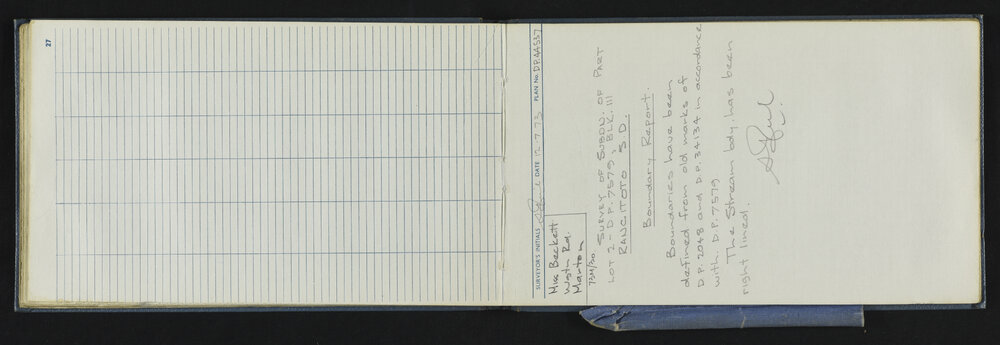 27
SURVEYOR'S INITIALS DATE 12.7.73 PLAN No. D.P. 44537
Miss Beckett
Wgtn Rd.
Marton
73M/30
SURVEY OF SUBDN. OF PART
LOT 2 - D.P. 7579, BLK. III
RANGITOTO S.D.
Boundary Report.
Boundaries have been
defined from old marks of
D.P. 2048 and D.P. 34134 in accordance
with D.P. 7579
The Stream bdy. has been
right lined.